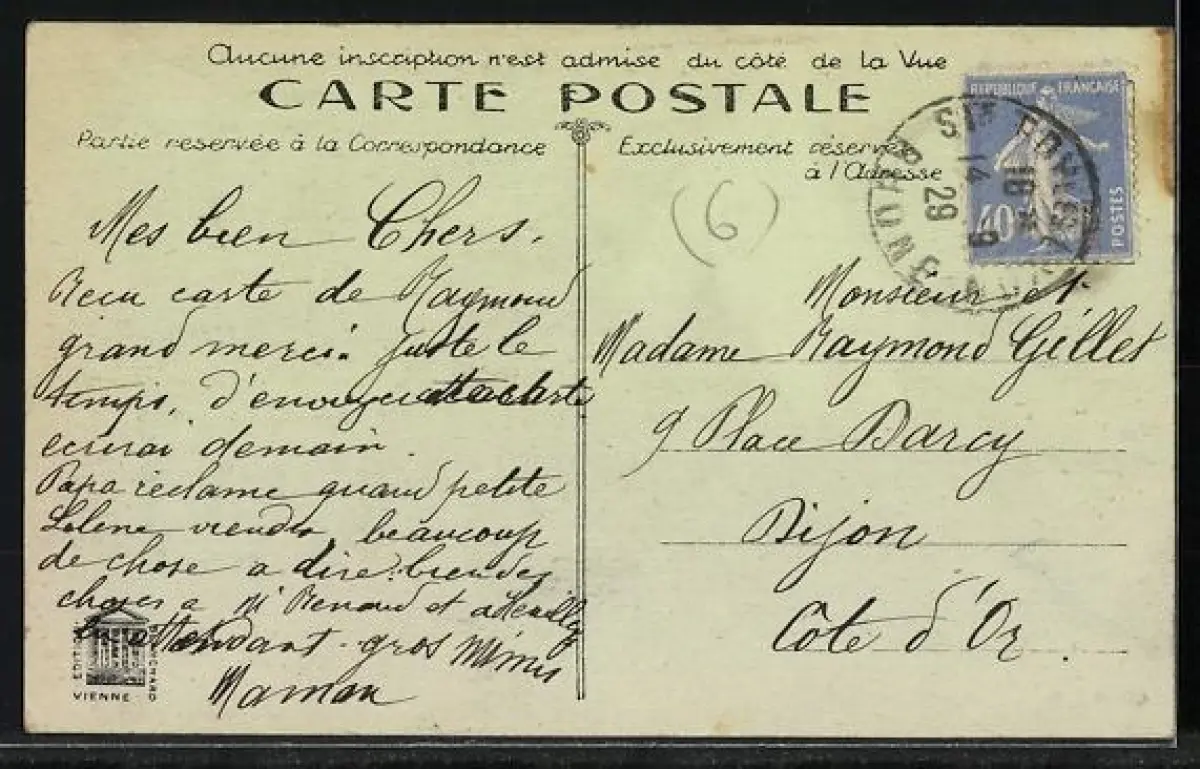 Aucune inscription n'est admise du côté de la Vue
CARTE POSTALE
Partie reservée à la Correspondance
Exclusivement réservé
à l'Adresse
REPUBLIQUE FRANÇAISE
40
POSTES
14
29
(6)
Mes bien Chers.
Reçu carte de Raymond
grand merci. Juste le
temps, d'envoyer carte
ecrirai demain.
Papa réclame quand petite
viendra, beaucoup
de chose a dire. bien des
choses a Mr Renaud et
En attendant - gros Mimis
Maman
Monsieur et
Madame Raymond Gillet
9 Place Darcy
Dijon
Côte d'Or.
VIENNE